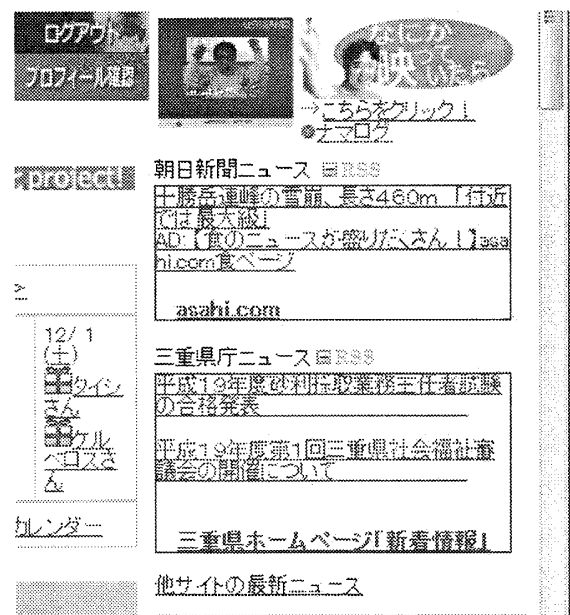 ログアウト
プロフィール確認
なにか
映って
いたら
→こちらをクリック!
●ナマログ
project!
朝日新聞ニュース RSS
十勝岳連峰の雪崩、長さ460m 「付近
では最大級」
AD:【食のニュースが盛りだくさん!】asa
hi.com食ページ
asahi.com
12/ 1
(土)
タイシ
さん
ケル
ベロスさ
ん
カレンダー
三重県庁ニュース RSS
平成19年度砂利採取業務主任者試験
の合格発表
平成19年度第1回三重県社会福祉審
議会の開催について
三重県ホームページ「新着情報」
他サイトの最新ニュース